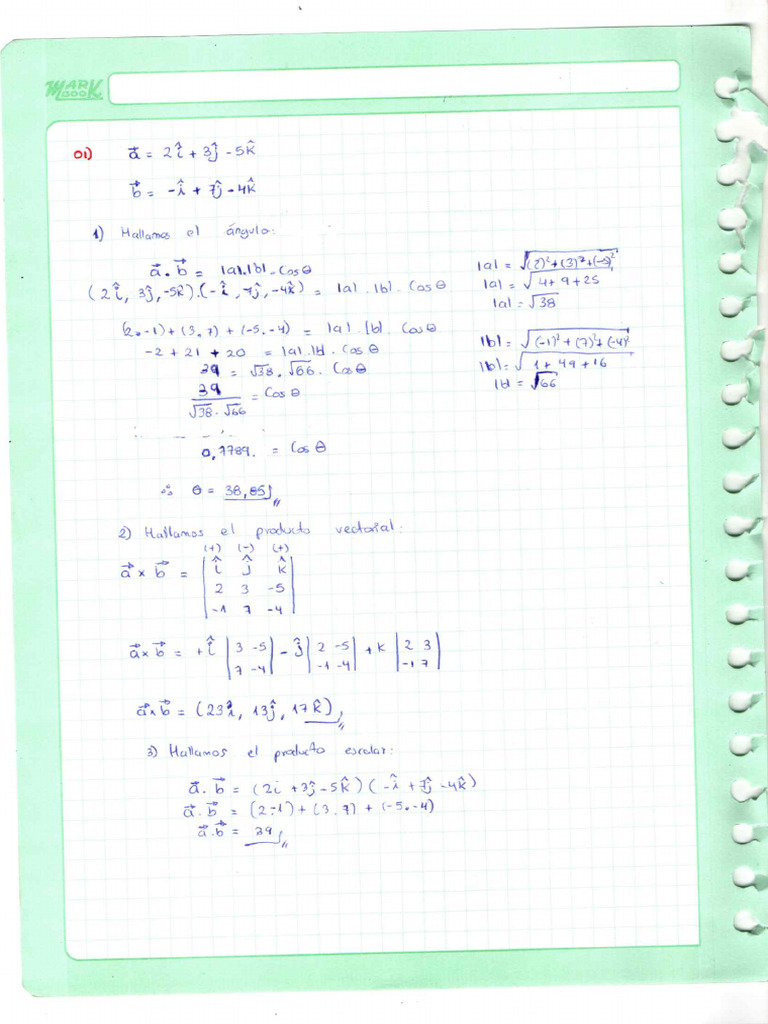 MARK BOOK
01) a⃗ = 2î + 3ĵ - 5k̂
b⃗ = -î + 7ĵ - 4k̂
1) Hallamos el ángulo:
a⃗ . b⃗ = |a|.|b| . Cos θ
(2î, 3ĵ, -5k̂).(-î, 7ĵ, -4k̂) = |a| . |b| . Cos θ
(2.-1) + (3.7) + (-5.-4) = |a| . |b| . Cos θ
-2 + 21 + 20 = |a|.|b| . Cos θ
39 = √38 . √66 . Cos θ
39 / √38 . √66 = Cos θ
0,7789. = Cos θ
∴ θ = 38,85
|a| = √(2)² + (3)² + (-5)²
|a| = √4 + 9 + 25
|a| = √38
|b| = √(-1)² + (7)² + (-4)²
|b| = √1 + 49 + 16
|b| = √66
2) Hallamos el producto vectorial:
(+) (-) (+)
a⃗ x b⃗ = | î ĵ k̂ |
2 3 -5
-1 7 -4
a⃗ x b⃗ = + î | 3 -5 | - ĵ | 2 -5 | + k | 2 3 |
7 -4 -1 -4 -1 7
a⃗ x b⃗ = (23î, 13ĵ, 17k̂)
3) Hallamos el producto escalar:
a⃗ . b⃗ = (2i + 3ĵ - 5k̂) (-î + 7ĵ - 4k̂)
a⃗ . b⃗ = (2.-1) + (3.7) + (-5.-4)
a⃗ . b⃗ = 39